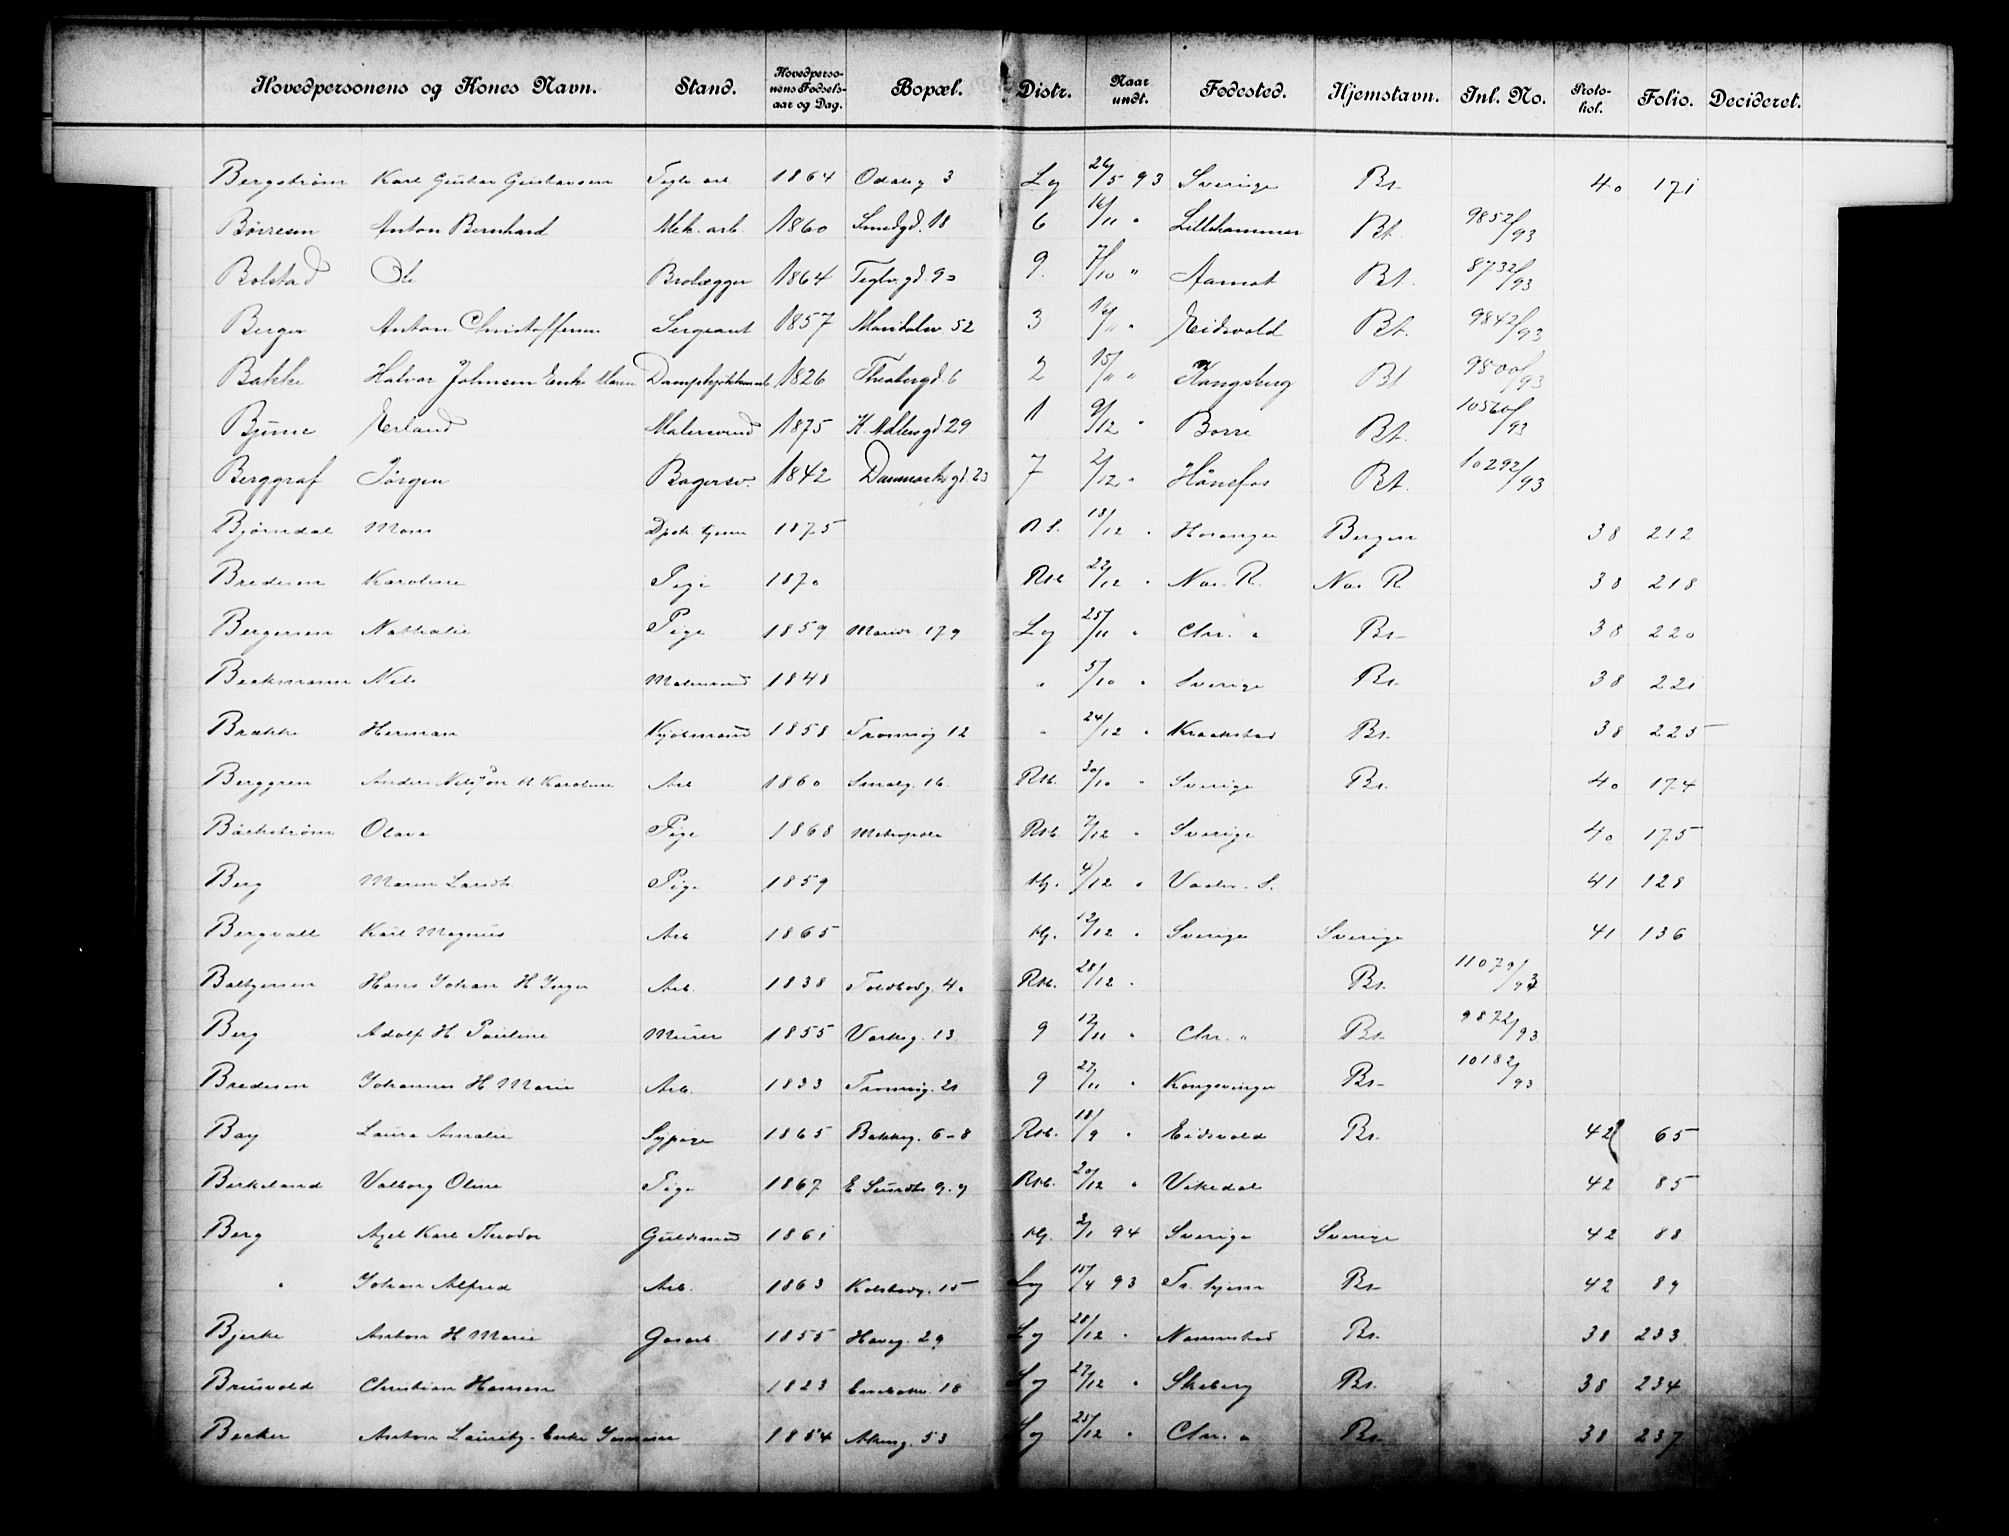 Hovedpersonens og Kones Navn. Stand. Hovedpersonens Fødselsaar og Dag. Bopæl. Distr. Naar undt. Fødested. Hjemstavn. Inl. No. Protokol. Folio. Decideret.
Bergstrøm Karl Gustav Gustavsen Tegls arb 1864 Odalsg 3 Lg 26/5 93 Sverige Bt. 40 171
Børresen Anton Bernhard Mek. arb. 1860 Smedgd. 18 6 16/11 " Lillehammer Bt. 9852/93
Bolstad Ole Brolægger 1864 9. 7/10 " Aamot Bt. 8732/93
Berger Anton Christoffersen Sergeant 1857 Maridalsv. 52 3 16/" " Eidsvold Bt. 9842/93
Bakke Halvor Johnsen Enke Maren 1826 Theatergd. 6 2 15/" " Kongsberg Bt 9800/93
Bjune Erland Malersvend 1875 29 11 9/12 " Borre Bt. 10560/93
Berggraf Jørgen Bagersv. 1842 Danmarksgd. 23 7 2/12 " Hønefos Bt. 10292/93
Bjørndal Mons 1875 18/12 " Hosanger Bergen 38 212
Bredesen Karoline Pige 1870 Rtb 22/12 " Nes. R. Nes. R 38 218
Bergersen Nathalie Pige 1859 Marids. 179 Lg 25/11 " Chr. a Bt. 38 220
Beckmann Nils Malersvend 1848 " 5/10 " Sverige Bt. 38 221
Brække Herman Kjøbmand 1858 Tromsøg 12 " 24/12 " Kraakstad Bt. 38 225
Berggren Anders Nilsson H Karoline Arb 1860 Smalg. 16 Rtb. 30/10 " Sverige Bt. 40 174
Bäckstrøm Olava Pige 1868 Metropole Rtb. 7/12 " Sverige 40 175
Berg Maren Larsdtr Pige 1859 4/12 " Vaaler. S. 41 128
Bergvall Karl Magnus Arb 1865 12/12 " Sverige Sverige 41 136
Baltzersen Hans Johan H Inger Arb. 1838 Toldbodg. 40 Rtb. 28/12 " Bt. 11079/93
Berg Adolf H Pauline Murer 1855 Verksg. 13 9 17/11 " Chr. a Bt. 9872/93
Bredesen Johannes H Marie Arb. 1833 Tromsøg. 21 9 27/11 " Kongsvinger Bt. 10182/93
Bay Laura Amalie Sypige 1865 Bakkeg. 6-8 Rtb. 18/9 " Eidsvold Bt. 42 65
Birkeland Valborg Oline Pige 1867 E Sundts g. 9 Rtb. 20/12 " Vikedal 42 85
Berg Axel Karl Theodor Guldsmed 1861 2/1 94 Sverige Sverige 42 88
" Johan Alfred Arb. 1863 Kolstadg. 15 Lg 15/4 93 Tr. hjem Bt. 42 89
Bjerke Anton H Marie Gasarb. 1855 Haveg. 29 Lg 28/12 " Nannestad Bt. 38 233
Brusvold Christian Hansen 1823 18 Lg 27/12 " Skeberg Bt. 38 234
Becker Anton Lauritz. Enke 1854 Akersg. 53 Lg 25/12 " Chr. a Bt. 38 237